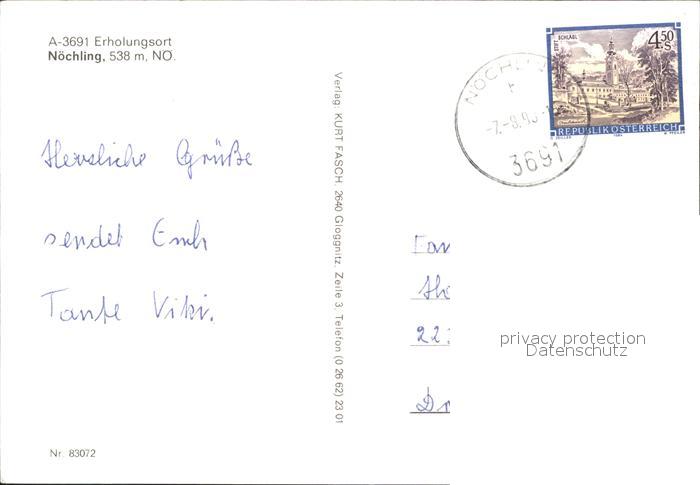 A-3691 Erholungsort
Nöchling, 538 m, NÖ.
Herzliche Grüße
sendet Euch
Tante Viki.
Nr. 83072
Verlag: KURT FASCH, 2640 Gloggnitz, Zeile 3, Telefon (0 26 62) 23 01
3691
STIFT SCHLÄGL
4.50
S
REPUBLIK ÖSTERREICH
22
privacy protection
Datenschutz